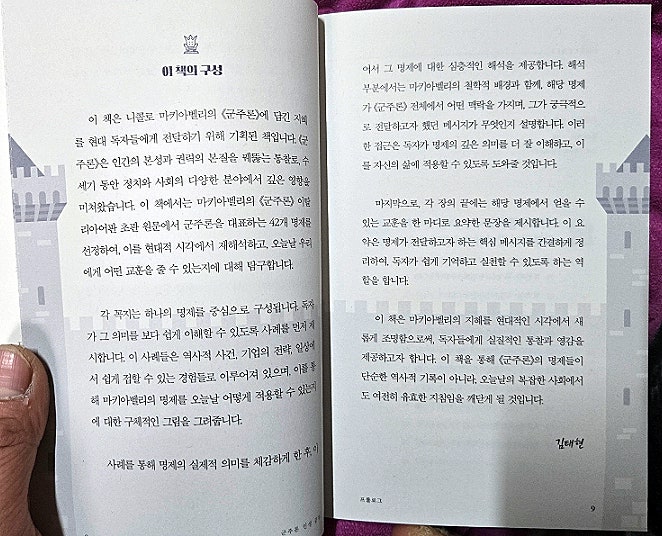 이 책의 구성
이 책은 니콜로 마키아벨리의 《군주론》에 담긴 지혜
를 현대 독자들에게 전달하기 위해 기획된 책입니다. 《군
주론》은 인간의 본성과 권력의 본질을 꿰뚫는 통찰로, 수
세기 동안 정치와 사회의 다양한 분야에서 깊은 영향을
미쳐왔습니다. 이 책에서는 마키아벨리의 《군주론》 이탈
리아어판 초판 원문에서 군주론을 대표하는 42개 명제를
선정하여, 이를 현대적 시각에서 재해석하고, 오늘날 우리
에게 어떤 교훈을 줄 수 있는지에 대해 탐구합니다.
각 꼭지는 하나의 명제를 중심으로 구성됩니다. 독자
가 그 의미를 보다 쉽게 이해할 수 있도록 사례를 먼저 제
시합니다. 이 사례들은 역사적 사건, 기업의 전략, 일상에
서 쉽게 접할 수 있는 경험들로 이루어져 있으며, 이를 통
해 마키아벨리의 명제를 오늘날 어떻게 적용할 수 있는지
에 대한 구체적인 그림을 그려줍니다.
사례를 통해 명제의 실제적 의미를 체감하게 한 후, 이
군주론 인생
어서 그 명제에 대한 심층적인 해석을 제공합니다. 해석
부분에서는 마키아벨리의 철학적 배경과 함께, 해당 명제
가 《군주론》 전체에서 어떤 맥락을 가지며, 그가 궁극적으
로 전달하고자 했던 메시지가 무엇인지 설명합니다. 이러
한 접근은 독자가 명제의 깊은 의미를 더 잘 이해하고, 이
를 자신의 삶에 적용할 수 있도록 도와줄 것입니다.
마지막으로, 각 장의 끝에는 해당 명제에서 얻을 수
있는 교훈을 한 마디로 요약한 문장을 제시합니다. 이 요
약은 명제가 전달하고자 하는 핵심 메시지를 간결하게 정
리하여, 독자가 쉽게 기억하고 실천할 수 있도록 하는 역
할을 합니다.
이 책은 마키아벨리의 지혜를 현대적인 시각에서 새
롭게 조명함으로써, 독자들에게 실질적인 통찰과 영감을
제공하고자 합니다. 이 책을 통해 《군주론》의 명제들이
단순한 역사적 기록이 아니라, 오늘날의 복잡한 사회에서
도 여전히 유효한 지침임을 깨닫게 될 것입니다.
김태현
프롤로그
9